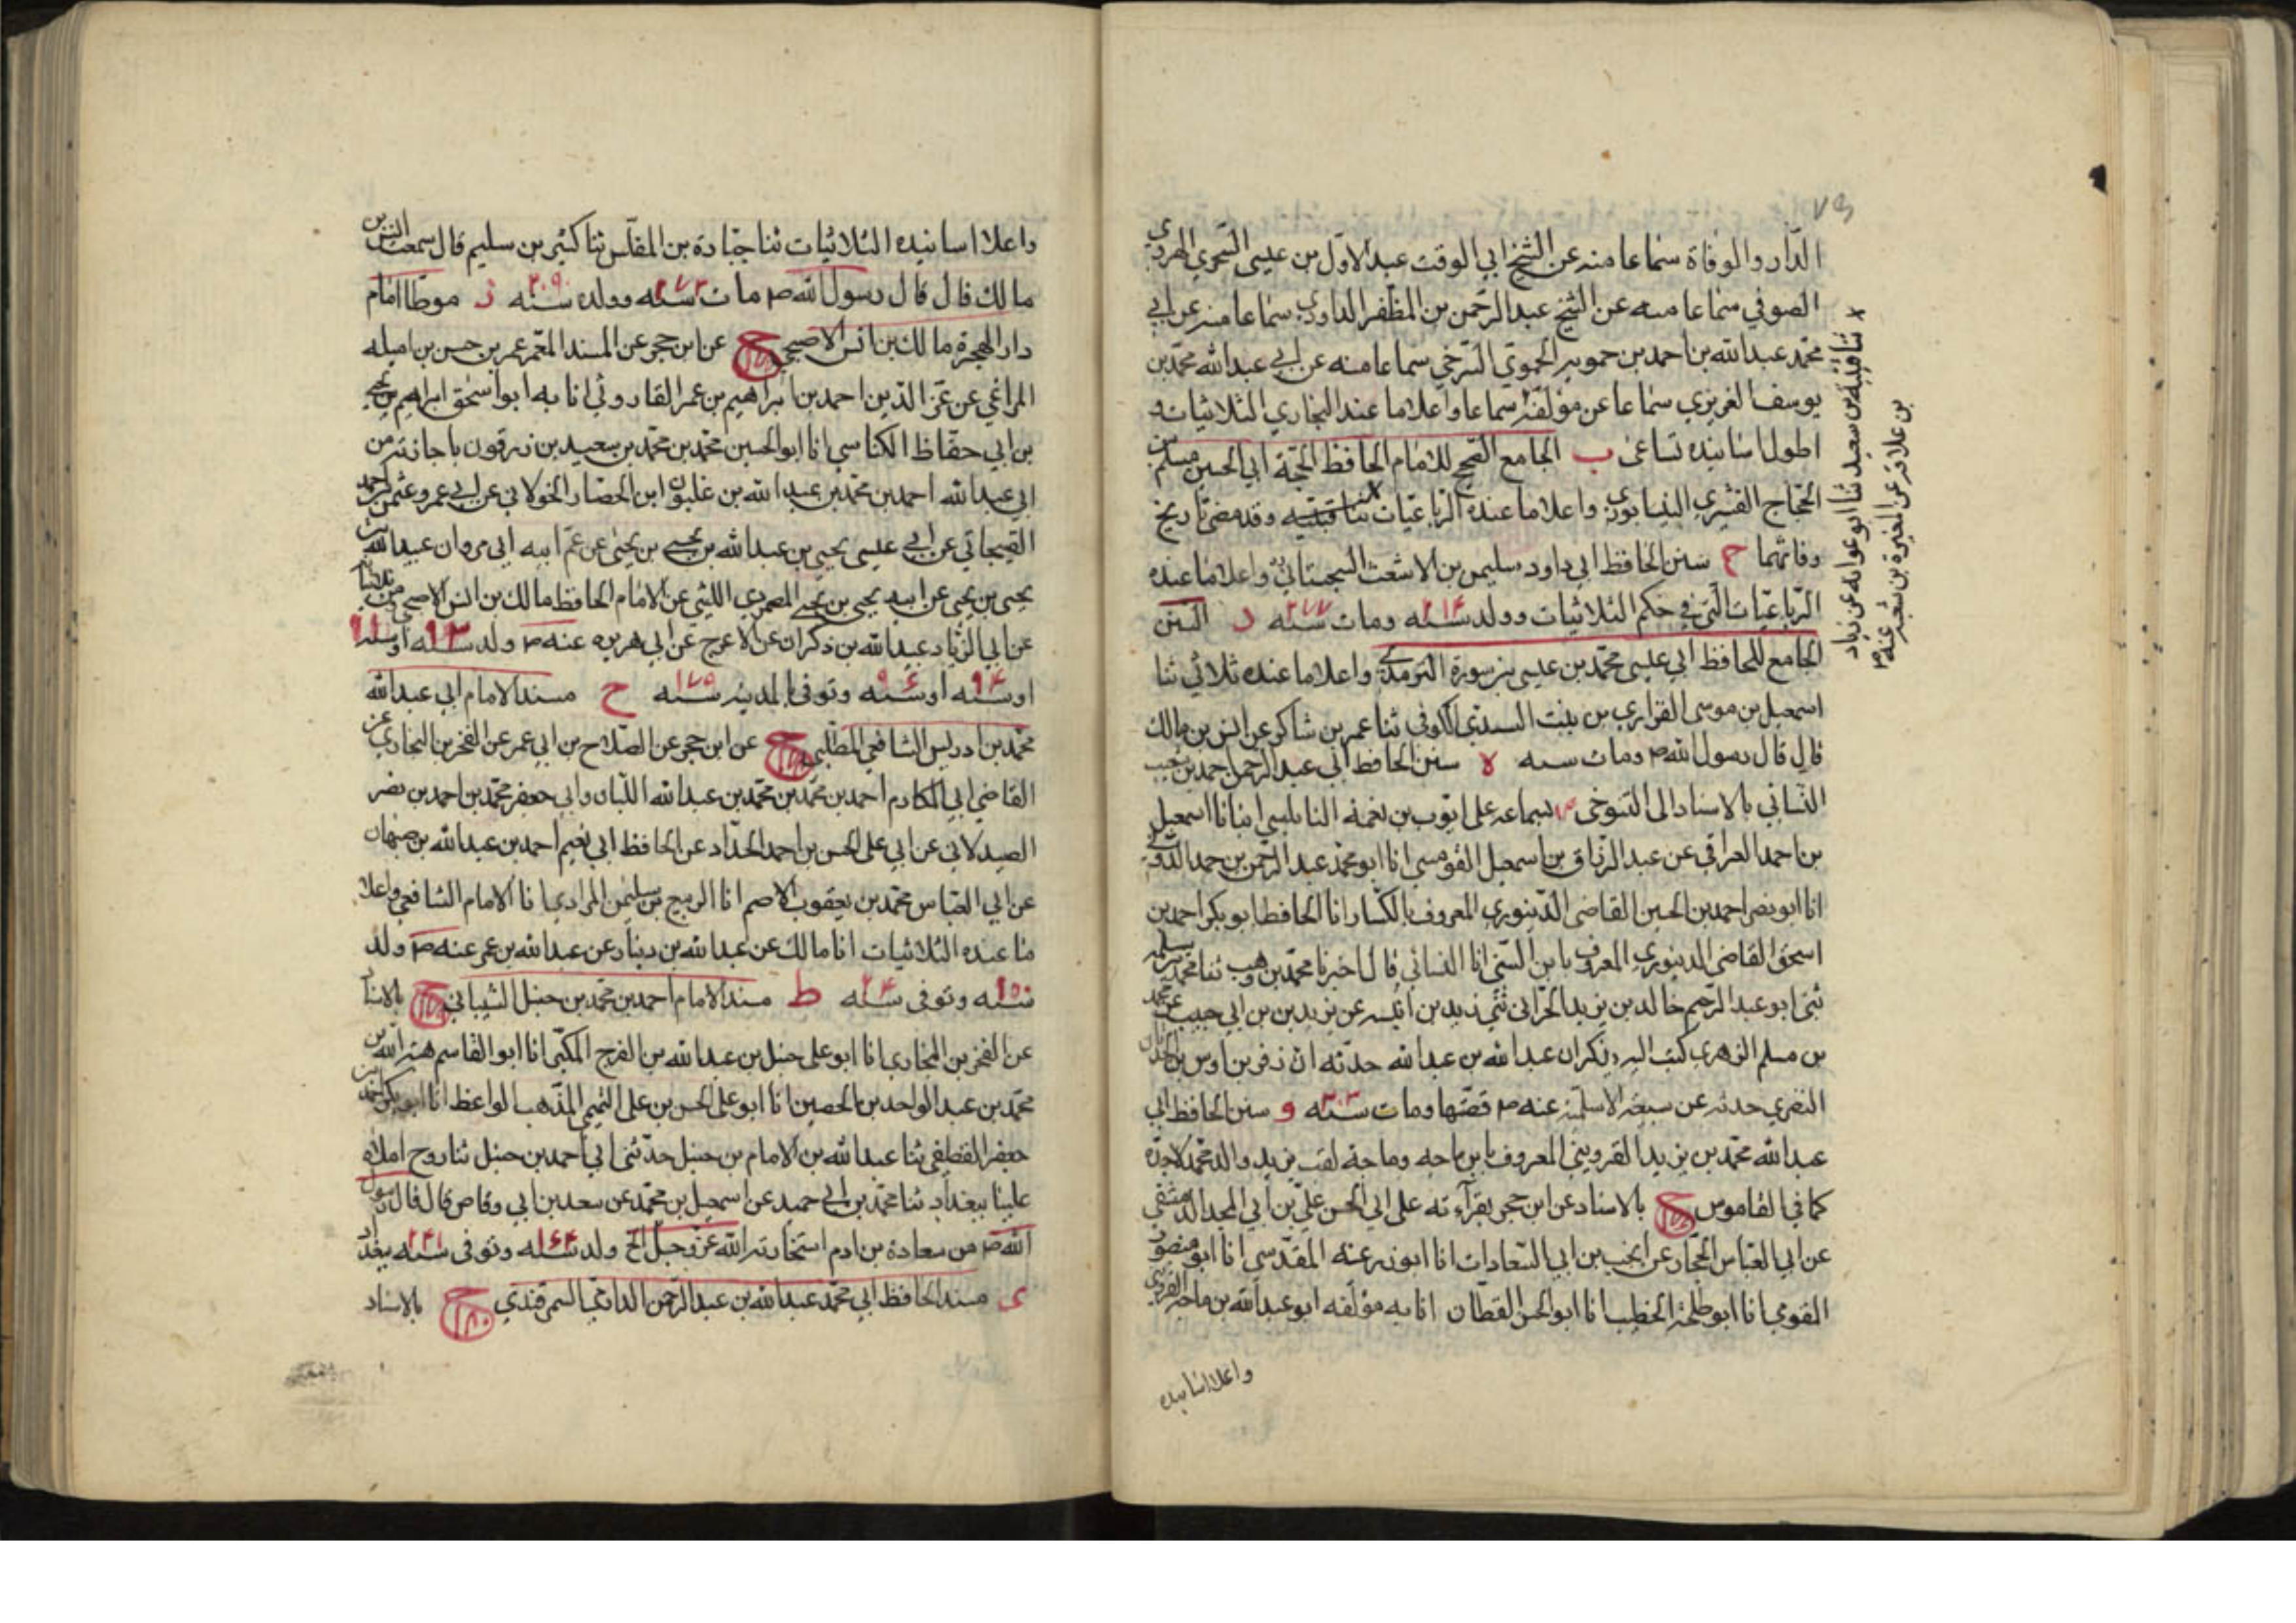 ٧٩
الدار والوفاة سماعا منه عن الشيخ ابي الوقت عبد الاول بن عيسى السجزي الهروي
الصوفي سماعا منه عن الشيخ عبد الرحمن بن المظفر الداودي سماعا منه عن ابي
محمد عبد الله بن احمد بن حمويه الحموي السرخسي سماعا منه عن ابي عبد الله محمد بن
يوسف الفربري سماعا عن مؤلفه سماعا واعلا ما عند البخاري الثلاثيات و
اطول اسانيده تساعي ب الجامع الصحيح للامام الحافظ الحجة ابي الحسين مسلم بن
الحجاج القشيري النيسابوري واعلا ما عنده الرباعيات ثنا قتيبه وقد مضى تاريخ
وفاتهما ج سنن الحافظ ابي داود سليمن بن الاشعث السجستاني واعلا ما عنده
الرباعيات التي في حكم الثلاثيات وولد سنه ٢١٤ ومات سنه ٢٧٧ د السنن
الجامع للحافظ ابي عيسى محمد بن عيسى بن سورة الترمذي واعلا ما عنده ثلاثي ثنا
اسمعيل بن موسى الفزاري بن بنت السدي الكوفي ثنا عمر بن شاكر عن انس بن مالك
قال قال رسول الله ص ومات سنه ه سنن الحافظ ابي عبد الرحمن احمد بن شعيب
النسائي بالاسناد الى التنوخي بسماعه على ايوب بن نعمة النابلسي انبانا اسمعيل
بن احمد العراقي عن عبد الرزاق بن اسمعيل القومسي انا ابو محمد عبد الرحمن بن حمد الدوني
انا ابو نصر احمد بن الحسين القاضي الدينوري المعروف بالكسار انا الحافظ ابو بكر احمد بن
اسحق القاضي الدينوري المعروف بابن السني انا النسائي قال اخبرنا محمد بن وهب ثنا محمد بن سلمه
ثني ابو عبد الرحيم خالد بن يزيد الحراني ثني زيد بن انيسه عن يزيد بن بن ابي حبيب عن محمد
بن مسلم الزهري كتب اليه يذكر ان عبد الله بن عبد الله حدثه ان زفر بن اوس بن الحدثان
النصري حدثه عن سبيعه الاسلميه عنه ص قصتها ومات سنه ٣٠٣ و سنن الحافظ ابي
عبد الله محمد بن يزيد القزويني المعروف بابن ماجه وماجه لقب يزيد والد محمد لاجده
كما في القاموس ح بالاسناد عن ابن حجر بقرآءته على ابي الحسن علي بن ابي المجد الدمشقي
عن ابي العباس الحجار عن انجب بن ابي السعادات انا ابو زرعه المقدسي انا ابو منصور
المقومي انا ابو طلحة الخطيب انا ابو الحسن القطان انا به مؤلفه ابو عبد الله بن ماجه القزويني
واعلا اسانيده
x ثنا قتيبه بن سعيد ثنا ابو عوانه عن زياد
بن علاقه عن المغيرة بن شعبه عنه ص
واعلا اسانيده الثلاثيات ثنا جبارة بن المغلس ثنا كثير بن سليم قال سمعت انس بن
مالك قال قال رسول الله ص مات سنه ٢٧٣ وولد سنه ٢٠٩ ز موطا امام
دار الهجرة مالك بن انس الاصبحي ح عن ابن حجر عن المسند المعمر عمر بن حسن بن اميله
المراغي عن عز الدين احمد بن ابراهيم بن عمر الفاروثي انا به ابو اسحق ابراهيم بن يحيى
بن ابي حفاظ الكناسي انا ابو الحسين محمد بن محمد بن سعيد بن زرقون باجازته من
ابي عبد الله احمد بن محمد بن عبد الله بن غلبون ابن الحصار الخولاني عن ابي عمرو عثمن بن احمد
القيجاتي عن ابي عيسى يحيى بن عبد الله بن يحيى بن يحيى عن عم ابيه ابي مروان عبيد الله بن
يحيى بن يحيى عن ابيه يحيى بن يحيى المصمودي الليثي عن الامام الحافظ مالك بن انس الاصبحي ومن ثلاثياته
عن ابي الزناد عبد الله بن ذكوان عن الاعرج عن ابي هريره عنه ص ولد سنه ٩٣ او سنه ٩١
او سنه ٩٤ او سنه وتوفي بالمدينه سنه ١٧٩ ح مسند الامام ابي عبد الله
محمد بن ادريس الشافعي المطلبي ح عن ابن حجر عن الصلاح بن ابي عمر عن الفخر بن البخاري عن
القاضي ابي المكارم احمد بن محمد بن محمد بن عبد الله اللبان وابي جعفر محمد بن احمد بن نصر
الصيدلاني عن ابي علي الحسن بن احمد الحداد عن الحافظ ابي نعيم احمد بن عبد الله بن صبهان
عن ابي العباس محمد بن يعقوب الاصم انا الربيع بن سليمن المرادي انا الامام الشافعي واعلا
ما عنده الثلاثيات انا مالك عن عبد الله بن دينار عن عبد الله بن عمر عنه ص ولد
سنه ١٥٠ وتوفي سنه ٢٠٤ ط مسند الامام احمد بن محمد بن حنبل الشيباني ح بالاسناد
عن الفخر بن البخاري انا ابو علي حنبل بن عبد الله بن الفرج المكبي انا ابو القاسم هبة الله بن
محمد بن عبد الواحد بن الحصين انا ابو علي الحسن بن علي التميمي المذهب الواعظ انا ابو بكر احمد بن
جعفر القطيفي ثنا عبد الله بن الامام بن حنبل حدثني ابي احمد بن حنبل ثنا روح املاه
علينا ببغداد ثنا محمد بن ابي حميد عن اسمعيل بن محمد عن سعد بن ابي وقاص قال قال رسول
الله ص من سعادة بن ادم استخارته الله عز وجل الخ ولد سنه ١٦٤ وتوفي سنه ٢٤١ ببغداد
ى مسند الحافظ ابي محمد عبد الله بن عبد الرحمن الدارمي السمرقندي ح بالاسناد